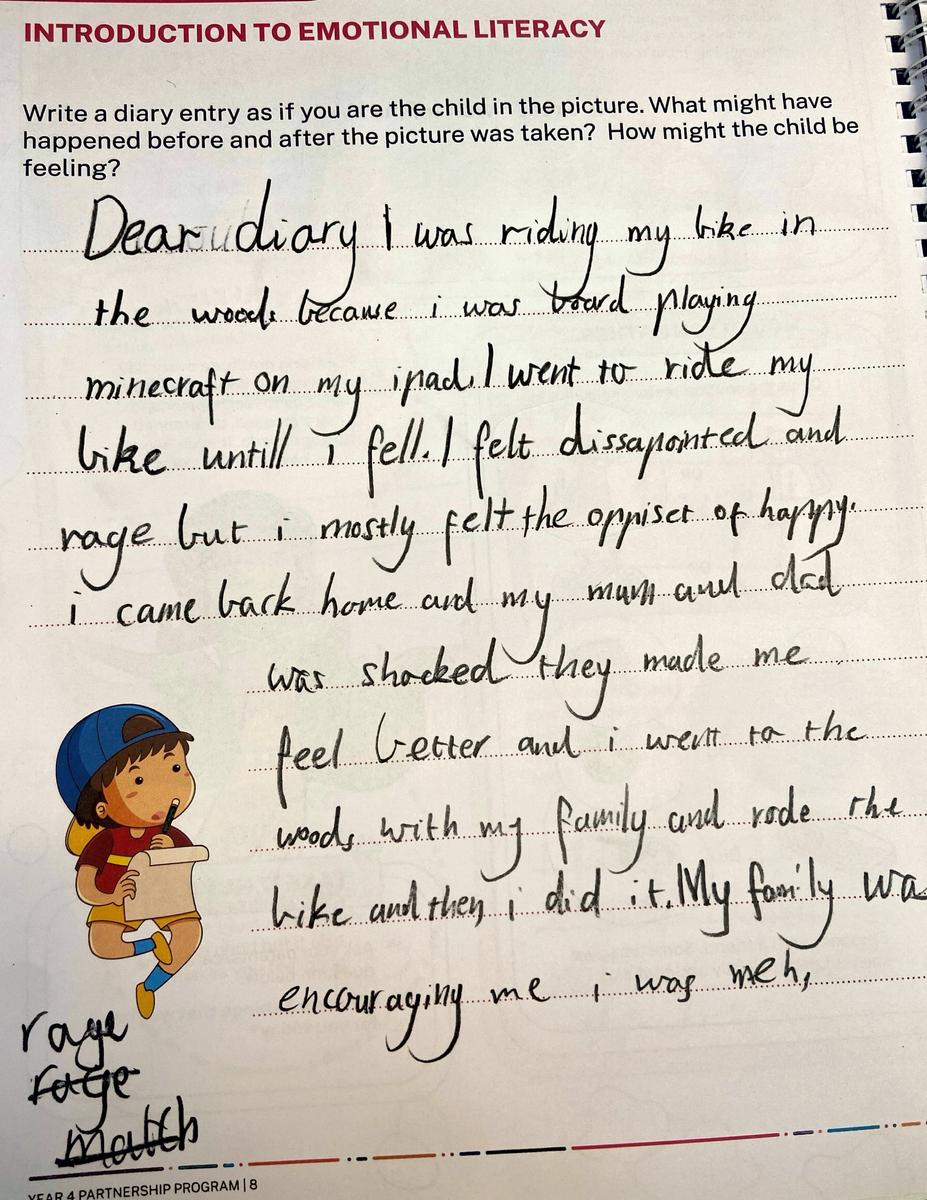 INTRODUCTION TO EMOTIONAL LITERACY
Write a diary entry as if you are the child in the picture. What might have
happened before and after the picture was taken? How might the child be
feeling?
Dear diary I was riding my bike in
the woods because i was board playing
minecraft on my ipad. I went to ride my
bike untill i fell. I felt dissapointed and
rage but i mostly felt the oppiset of happy.
i came back home and my mum and dad
was shocked they made me
feel better and i went to the
woods with my family and rode the
bike and then i did it. My family wa
encouraging me i was meh,
rage
rage
YEAR 4 PARTNERSHIP PROGRAM | 8